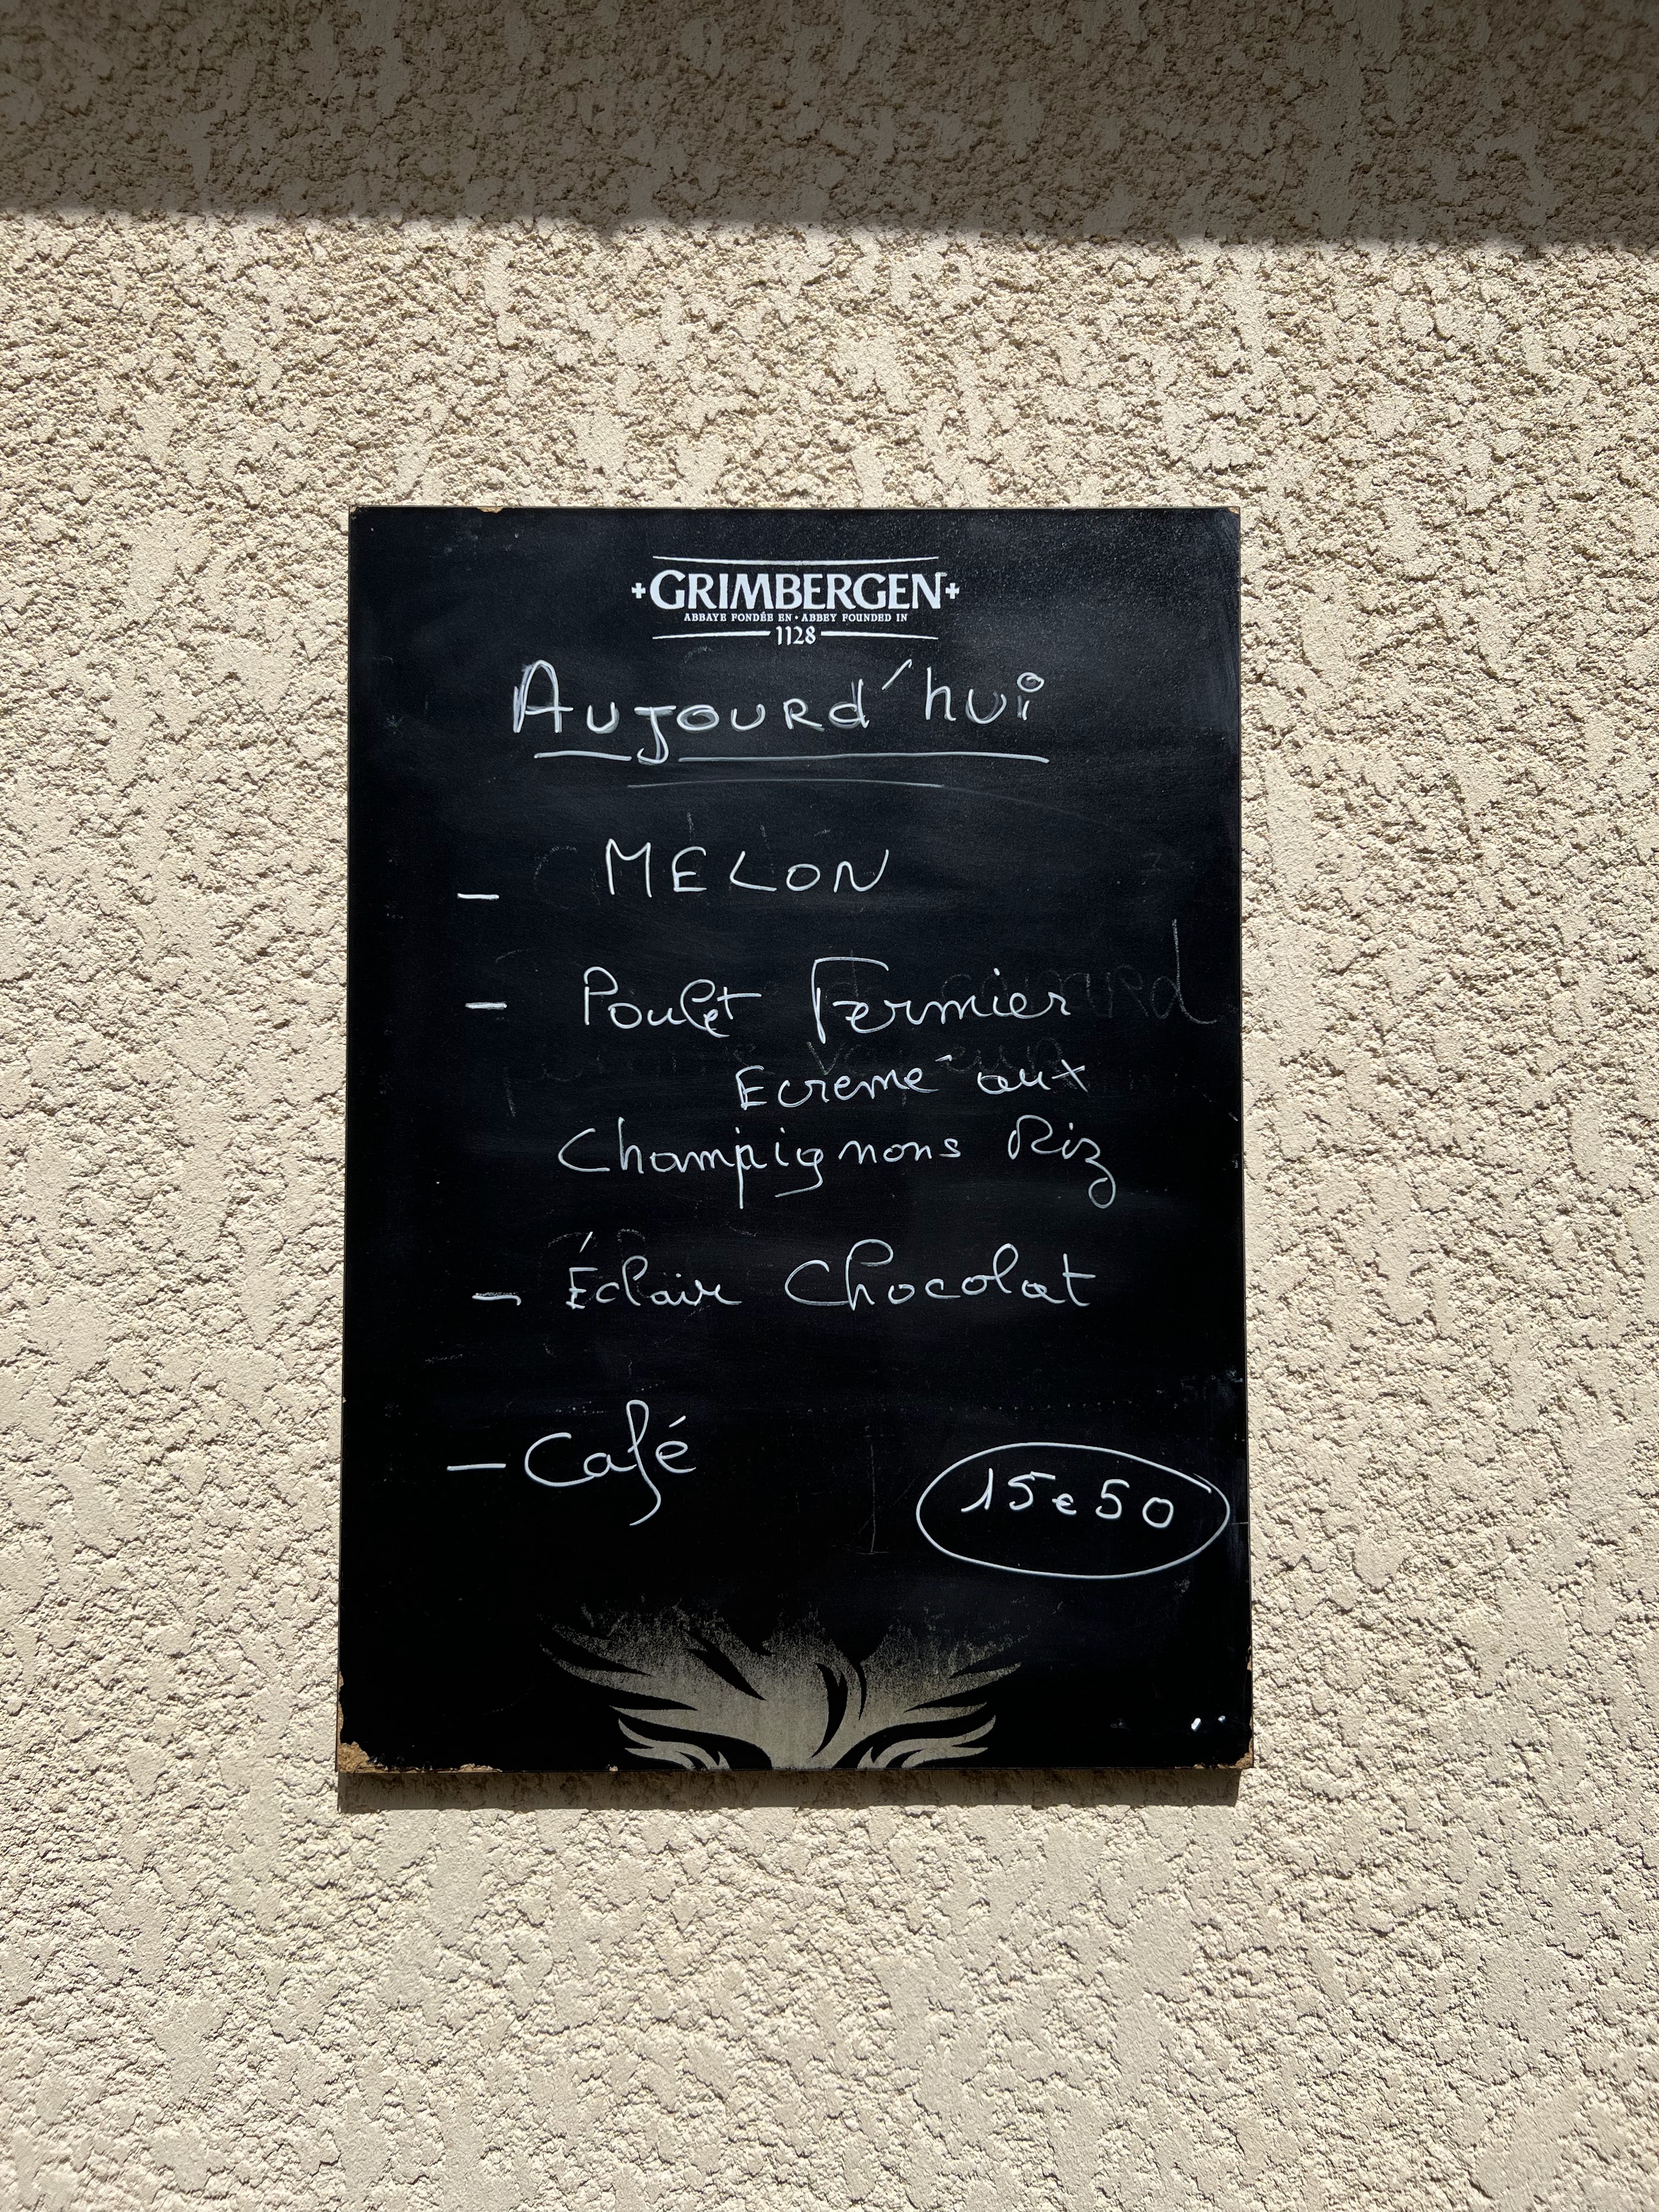 GRIMBERGEN
ABBAYE FONDÉE EN • ABBEY FOUNDED IN
1128
Aujourd'hui
- MELON
- Poulet Fermier
Ecremé aux
Champignons Riz
- Éclair Chocolat
- Café
15e50